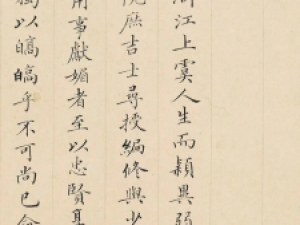 浙江上虞人生而穎異弱
院庶吉士尋授編修與少
用事獻媚者至以忠賢
以皜皜乎不可尚已